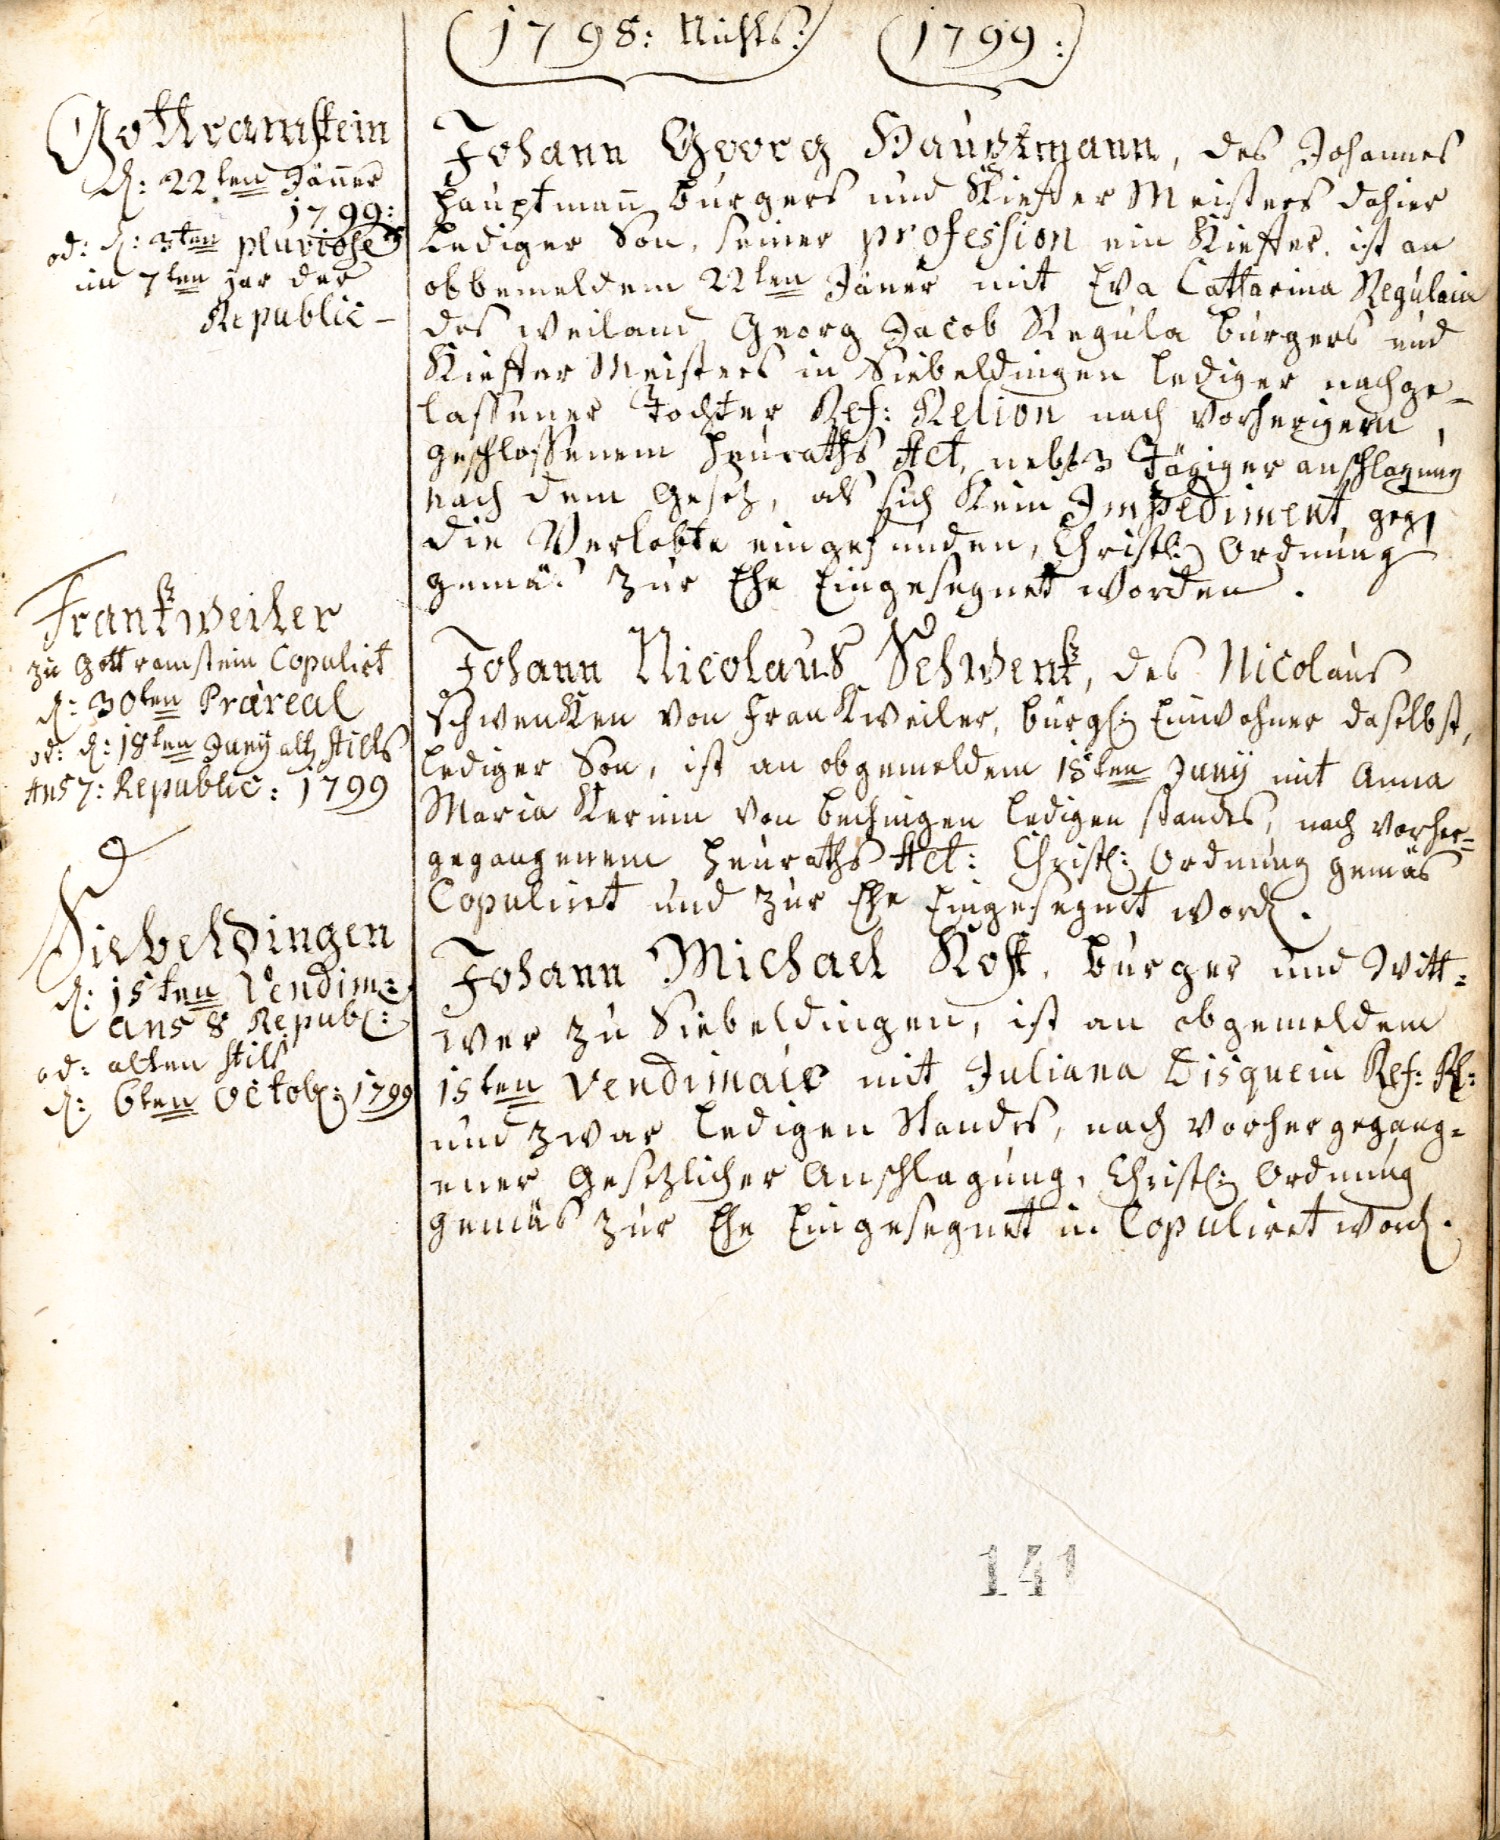 1798: Nichts: 1799:
Gottramstein
d: 22ten Jäner
1799:
od: d: 3ten pluviose
im 7ten jar der
Republic –
Johann Georg Hauptmann, des Johannes
Hauptmann burgers und Kieffer Meisters dahier
Lediger Son, seiner profession ein Kieffer. ist an
obbemeldem 22ten Jäner mit Eva Catharina Regulain
des weiland Georg Jacob Regula burgers und
Kieffer Meisters in Siebeldingen lediger nachge-
lassener Tochter Ref: Relion nach vorherigem,
geschlossenem Heuraths Act, nebst 3 Tägiger anschlagung
nach dem Gesetz, als sich Kein Impediment, geg
die Verlobte eingefunden, Christl: Ordnung
gemäs zur Ehe Eingesegnet worden.
Frankweiler
zu Gottramstein Copulirt
d: 30ten Præreal
od: d: 18ten Juny alt Stills
Ans 7: Republic: 1799
Johann Nicolaus Schwenk, des Nicolaus
Schwenken von Frankweiler, burgl: Einwohner daselbst,
lediger Son, ist an obgemeldem 18ten Juny mit Anna
Maria Kernin von bechingen ledigen standes, nach vorher=
gegangenem Heuraths Act: Christl: Ordnung gemäs
Copulirt und zur Ehe Eingesegnet word.
Siebeldingen
d: 15ten Vendim:
ans 8 Republ:
od: alten Stils
d: 6ten Octob: 1799
Johann Michael Kost, burger und Witt=
wer zu Siebeldingen, ist an obgemeldem
15ten Vendimaie mit Juliana Disquein Ref: Rl:
und zwar ledigen Standes, nach vorhergegang=
ener Gesetzlicher Anschlagung, Christl: Ordnung
gemäs zur Ehe Eingesegnet u. Copulirt word.
141